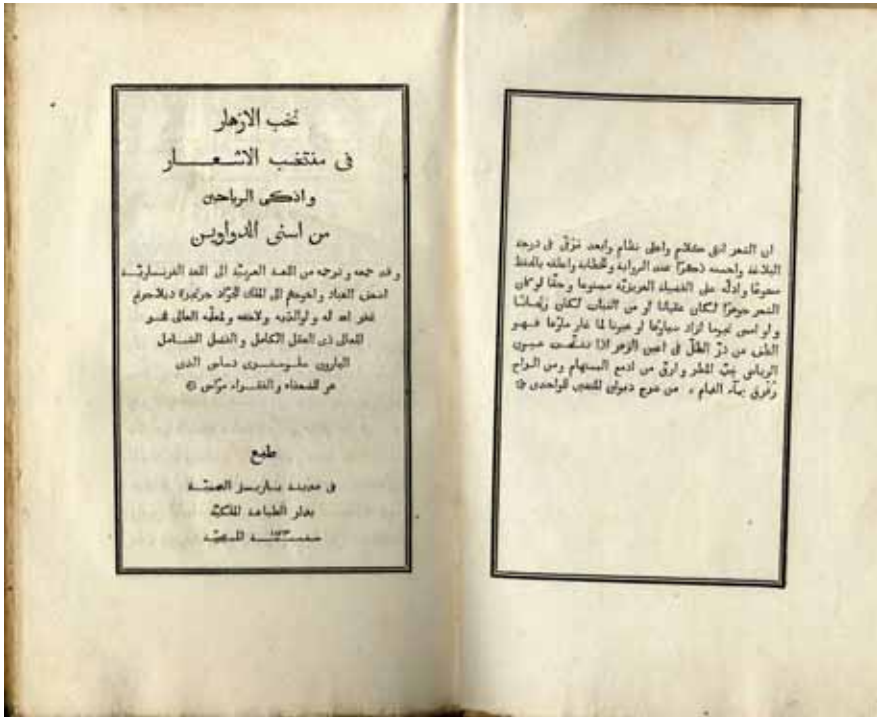 ان الشعر ابقى كلام واحلى نظام وابعد مَرْقًى فى درجة
البلاغة واحسنه ذكرًا عند الرواية والخطابة واعلقه بالحفظ
مسموعًا وادلّه على الفضيلة الغريزيّة مصنوعا وحقًّا لو كان
الشعر جوهرًا لكان عقيانًا او من النبات لكان ريحانًا
ولو امسى نجوما لما زاد او عيونا لما غار ماؤها فهو
الطف من درّ الطلّ فى اعين الزهر اذا تفتّحت عيون
الرياض غِبّ المطر وارقّ من ادمع المستهام ومن الراح
رُقْرِقَ بماء الغمام ، من شرح ديوان المتنبى للواحدى
نخب الازهار
فى منتخب الاشعار
واذكى الرياحين
من اسنى الدواوين
وقد جمعه وترجمه من اللغة العربيّة الى اللغة الفرنساويّة
اضعف العباد واحوجهم الى الملك الجوّاد
غفر الله له ولوالديه ولاخته ولمعلّمه العالى
المعالى ذى العقل الكامل والفضل الشامل
البارون سلوستوى دساسى الذى
هو للضعفاء والفقراء مؤاسى
طبع
فى مدينة باريز المحميّة
بدار الطباعة الملكيّة
سنة المسيحيّة